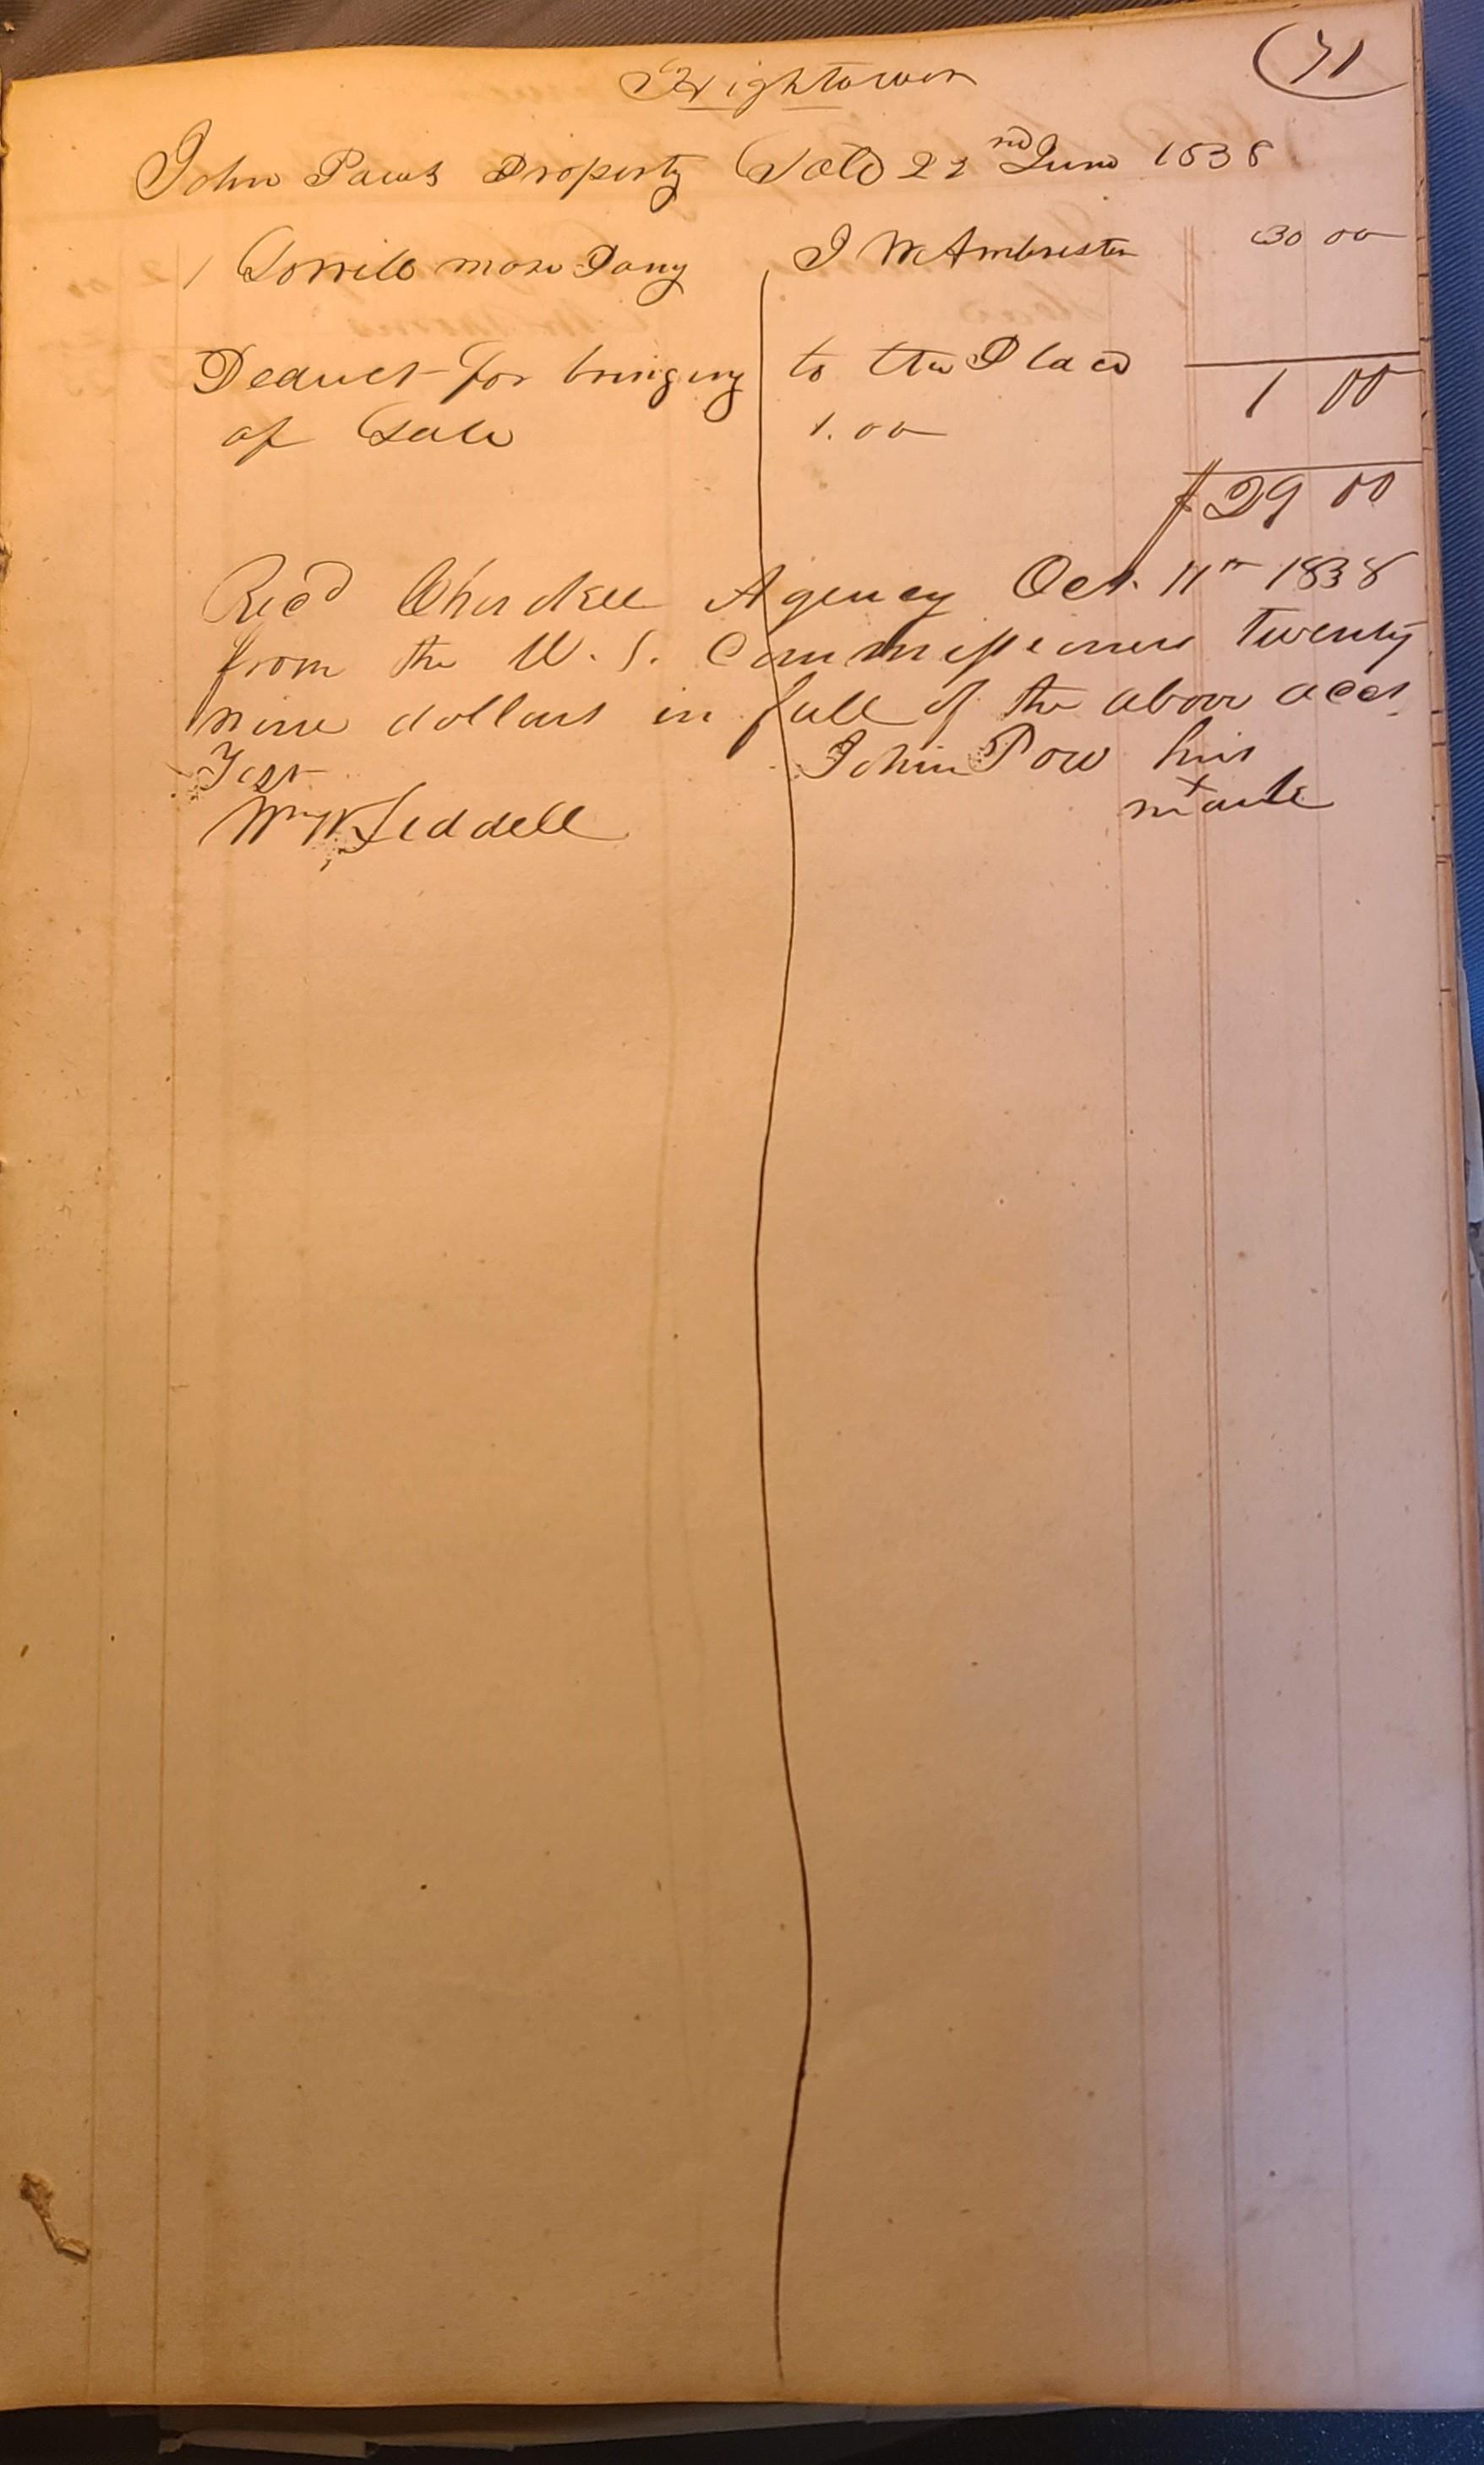 71
Hightower
John Paws Property Sold 22nd June 1838
1 Sorrell mare Pony J W Ambrister 30 00
Deduct for bringing to the Place
of Sale 1.00 1 00
$29 00
Recd Cherokee Agency Oct. 11th 1838
from the U. S. Commissioners Twenty
nine dollars in full of the above acct.
Test John Pow his
Wm W Liddell x mark